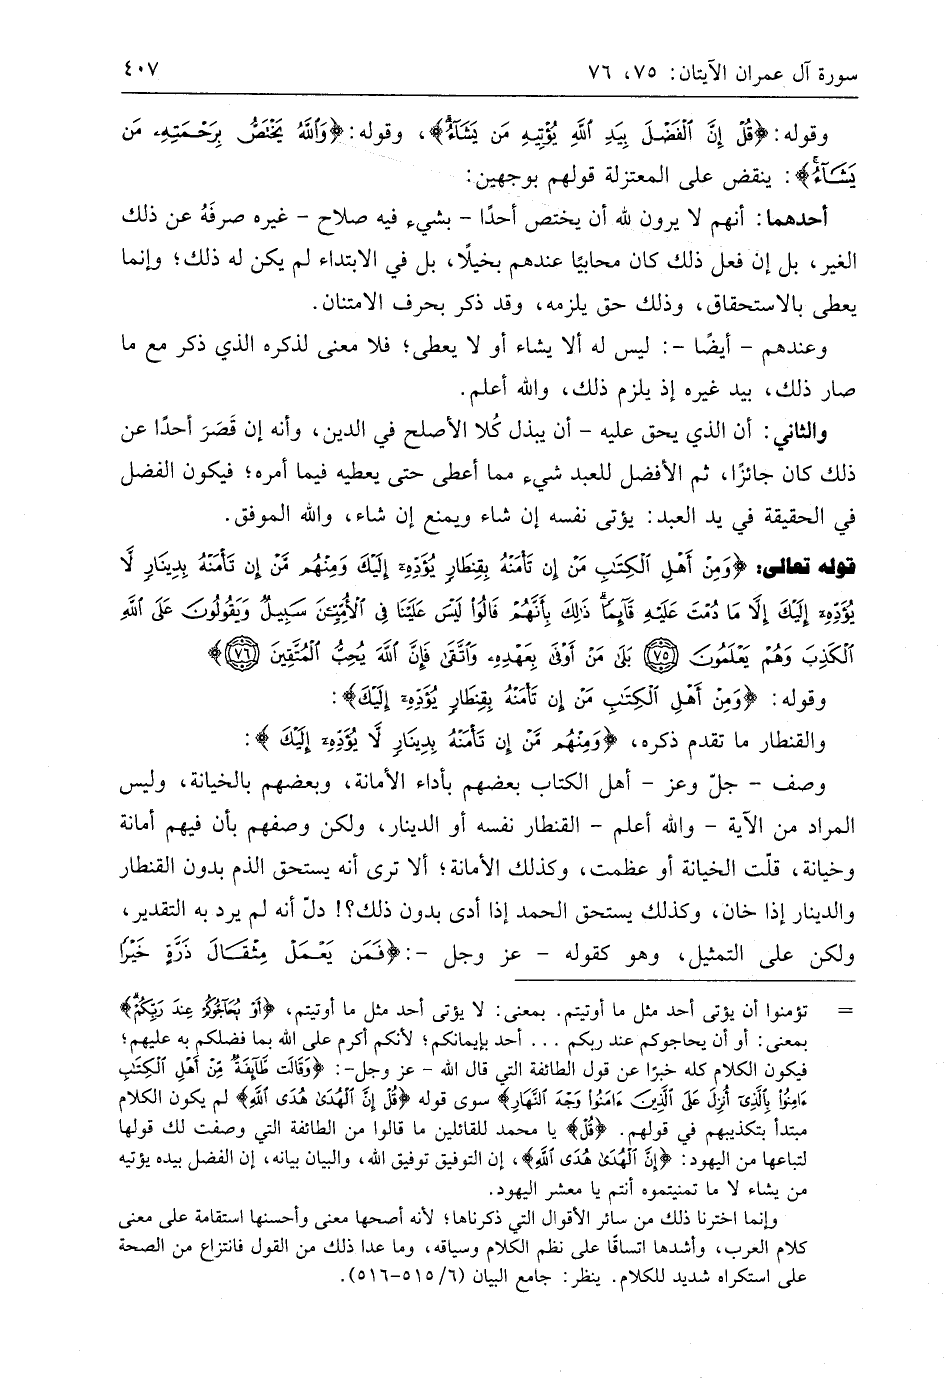 سورة آل عمران الآيتان: ٧٥، ٧٦ ٤٠٧
وقوله: ﴿قُلْ إِنَّ ٱلْفَضْلَ بِيَدِ ٱللَّهِ يُؤْتِيهِ مَن يَشَآءُ﴾، وقوله: ﴿وَٱللَّهُ يَخْتَصُّ بِرَحْمَتِهِۦ مَن
يَشَآءُۚ﴾: ينقض على المعتزلة قولهم بوجهين:
أحدهما: أنهم لا يرون لله أن يختص أحدًا - بشيء فيه صلاح - غيره صرفَهُ عن ذلك
الغير، بل إن فعل ذلك كان محابيًا عندهم بخيلًا، بل في الابتداء لم يكن له ذلك؛ وإنما
يعطى بالاستحقاق، وذلك حق يلزمه، وقد ذكر بحرف الامتنان.
وعندهم - أيضًا -: ليس له ألا يشاء أو لا يعطى؛ فلا معنى لذكره الذي ذكر مع ما
صار ذلك، بيد غيره إذ يلزم ذلك، والله أعلم.
والثاني: أن الذي يحق عليه - أن يبذل كُلا الأصلح في الدين، وأنه إن قَصَرَ أحدًا عن
ذلك كان جائزًا، ثم الأفضل للعبد شيء مما أعطى حتى يعطيه فيما أمره؛ فيكون الفضل
في الحقيقة في يد العبد: يؤتى نفسه إن شاء ويمنع إن شاء، والله الموفق.
قوله تعالى: ﴿وَمِنْ أَهْلِ ٱلْكِتَٰبِ مَنْ إِن تَأْمَنْهُ بِقِنطَارٍ يُؤَدِّهِۦٓ إِلَيْكَ وَمِنْهُم مَّنْ إِن تَأْمَنْهُ بِدِينَارٍ لَّا
يُؤَدِّهِۦٓ إِلَيْكَ إِلَّا مَا دُمْتَ عَلَيْهِ قَآئِمًاۗ ذَٰلِكَ بِأَنَّهُمْ قَالُوا۟ لَيْسَ عَلَيْنَا فِى ٱلْأُمِّيِّـۧنَ سَبِيلٌ وَيَقُولُونَ عَلَى ٱللَّهِ
ٱلْكَذِبَ وَهُمْ يَعْلَمُونَ (٧٥) بَلَىٰ مَنْ أَوْفَىٰ بِعَهْدِهِۦ وَٱتَّقَىٰ فَإِنَّ ٱللَّهَ يُحِبُّ ٱلْمُتَّقِينَ (٧٦)﴾
وقوله: ﴿وَمِنْ أَهْلِ ٱلْكِتَٰبِ مَنْ إِن تَأْمَنْهُ بِقِنطَارٍ يُؤَدِّهِۦٓ إِلَيْكَ﴾:
والقنطار ما تقدم ذكره، ﴿وَمِنْهُم مَّنْ إِن تَأْمَنْهُ بِدِينَارٍ لَّا يُؤَدِّهِۦٓ إِلَيْكَ﴾:
وصف - جلّ وعز - أهل الكتاب بعضهم بأداء الأمانة، وبعضهم بالخيانة، وليس
المراد من الآية - والله أعلم - القنطار نفسه أو الدينار، ولكن وصفهم بأن فيهم أمانة
وخيانة، قلّت الخيانة أو عظمت، وكذلك الأمانة؛ ألا ترى أنه يستحق الذم بدون القنطار
والدينار إذا خان، وكذلك يستحق الحمد إذا أدى بدون ذلك؟! دلّ أنه لم يرد به التقدير،
ولكن على التمثيل، وهو كقوله - عز وجل -: ﴿فَمَن يَعْمَلْ مِثْقَالَ ذَرَّةٍ خَيْرًا
= تؤمنوا أن يؤتى أحد مثل ما أوتيتم. بمعنى: لا يؤتى أحد مثل ما أوتيتم، ﴿أَوْ يُحَآجُّوكُمْ عِندَ رَبِّكُمْۗ﴾
بمعنى: أو أن يحاجوكم عند ربكم ... أحد بإيمانكم؛ لأنكم أكرم على الله بما فضلكم به عليهم؛
فيكون الكلام كله خبرًا عن قول الطائفة التي قال الله - عز وجل-: ﴿وَقَالَت طَّآئِفَةٌ مِّنْ أَهْلِ ٱلْكِتَٰبِ
ءَامِنُوا۟ بِٱلَّذِىٓ أُنزِلَ عَلَى ٱلَّذِينَ ءَامَنُوا۟ وَجْهَ ٱلنَّهَارِ﴾ سوى قوله ﴿قُلْ إِنَّ ٱلْهُدَىٰ هُدَى ٱللَّهِ﴾ لم يكون الكلام
مبتدأ بتكذيبهم في قولهم. ﴿قُلْ﴾ يا محمد للقائلين ما قالوا من الطائفة التي وصفت لك قولها
لتباعها من اليهود: ﴿إِنَّ ٱلْهُدَىٰ هُدَى ٱللَّهِ﴾، إن التوفيق توفيق الله، والبيان بيانه، إن الفضل بيده يؤتيه
من يشاء لا ما تمنيتموه أنتم يا معشر اليهود.
وإنما اخترنا ذلك من سائر الأقوال التي ذكرناها؛ لأنه أصحها معنى وأحسنها استقامة على معنى
كلام العرب، وأشدها اتساقًا على نظم الكلام وسياقه، وما عدا ذلك من القول فانتزاع من الصحة
على استكراه شديد للكلام. ينظر: جامع البيان (٦/ ٥١٥-٥١٦).